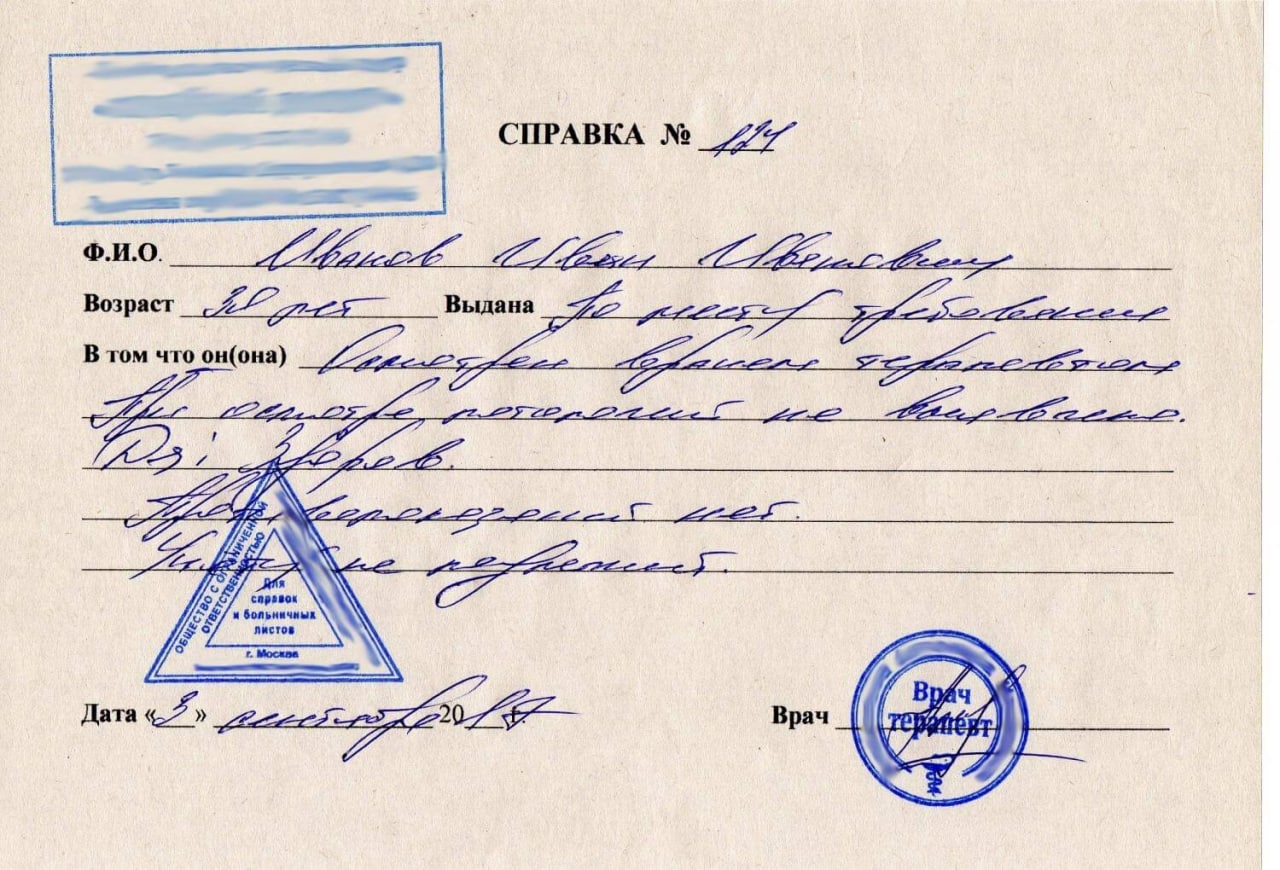 СПРАВКА № 124
Ф.И.О. Иванов Иван Иванович
Возраст 30 лет Выдана По месту требования
В том что он(она) Осмотрен врачом терапевтом
При осмотре патологий не выявлено.
Ds: Здоров.
Противопоказаний нет.
не
ОБЩЕСТВО С ОГРАНИЧЕННОЙ
ОТВЕТСТВЕННОСТЬЮ
Для
справок
и больничных
листов
г. Москва
Дата «3» сентября 2017 г.
Врач
Врач
терапевт